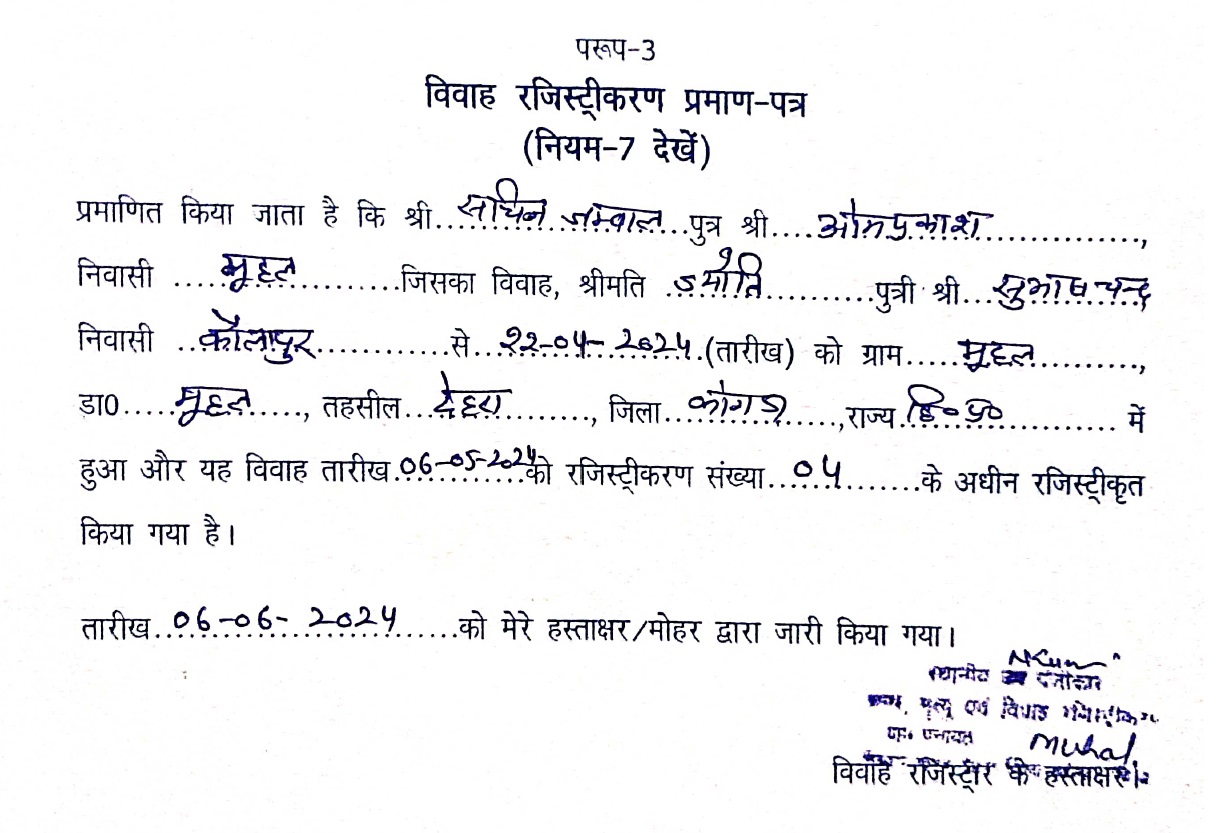 परूप-3
विवाह रजिस्ट्रीकरण प्रमाण-पत्र
(नियम-7 देखें)
प्रमाणित किया जाता है कि श्री..सचिन जम्वाल..पुत्र श्री....ओमप्रकाश................,
निवासी .....मूहल............जिसका विवाह, श्रीमति ..ज्योति............पुत्री श्री...सुभाष चन्द
निवासी ..कौलापुर..............से..22-04-2024.(तारीख) को ग्राम.....मूहल............,
डा0.....मूहल......, तहसील...देहरा........., जिला...कांगड़ा......,राज्य.हि॰प्र॰............ में
हुआ और यह विवाह तारीख.06-05-2024को रजिस्ट्रीकरण संख्या...04........के अधीन रजिस्ट्रीकृत
किया गया है।
तारीख..06-06-2024......को मेरे हस्ताक्षर/मोहर द्वारा जारी किया गया।
NKumar
स्थानीय पंजीकार
मृत्यु एवं विवाह
पंचायत Muhal
विवाह रजिस्ट्रार के हस्ताक्षर।